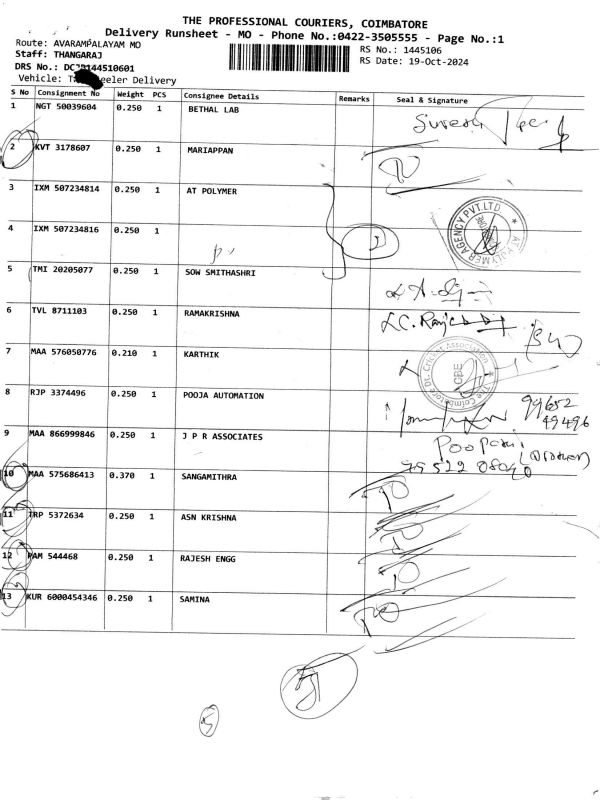 THE PROFESSIONAL COURIERS, COIMBATORE
Delivery Runsheet - MO - Phone No.:0422-3505555 - Page No.:1
Route: AVARAMPALAYAM MO
RS No.: 1445106
Staff: THANGARAJ
RS Date: 19-Oct-2024
DRS No.: 144510601
Vehicle: Delivery
S No Consignment No Weight PCS Consignee Details Remarks Seal & Signature
1 NGT 50039604 0.250 1 BETHAL LAB
Suresh
2 KVT 3178607 0.250 1 MARIAPPAN
3 IXM 507234814 0.250 1 AT POLYMER
4 IXM 507234816 0.250 1
5 TMI 20205077 0.250 1 SOW SMITHASHRI
6 TVL 8711103 0.250 1 RAMAKRISHNA
7 MAA 576050776 0.210 1 KARTHIK
8 RJP 3374496 0.250 1 POOJA AUTOMATION
99652
49496
9 MAA 866999846 0.250 1 J P R ASSOCIATES
10 MAA 575686413 0.370 1 SANGAMITHRA
11 IRP 5372634 0.250 1 ASN KRISHNA
12 PAM 544468 0.250 1 RAJESH ENGG
13 KUR 6000454346 0.250 1 SAMINA